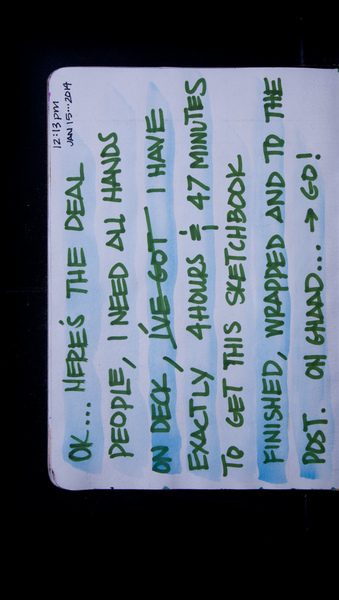 12:13PM
JAN 15...2014
OK... HERE'S THE DEAL
PEOPLE, I NEED ALL HANDS
ON DECK, I'VE GOT I HAVE
EXACTLY 4HOURS & 47 MINUTES
TO GET THIS SKETCHBOOK
FINISHED, WRAPPED AND TO THE
POST. OH GHAAD... → GO!